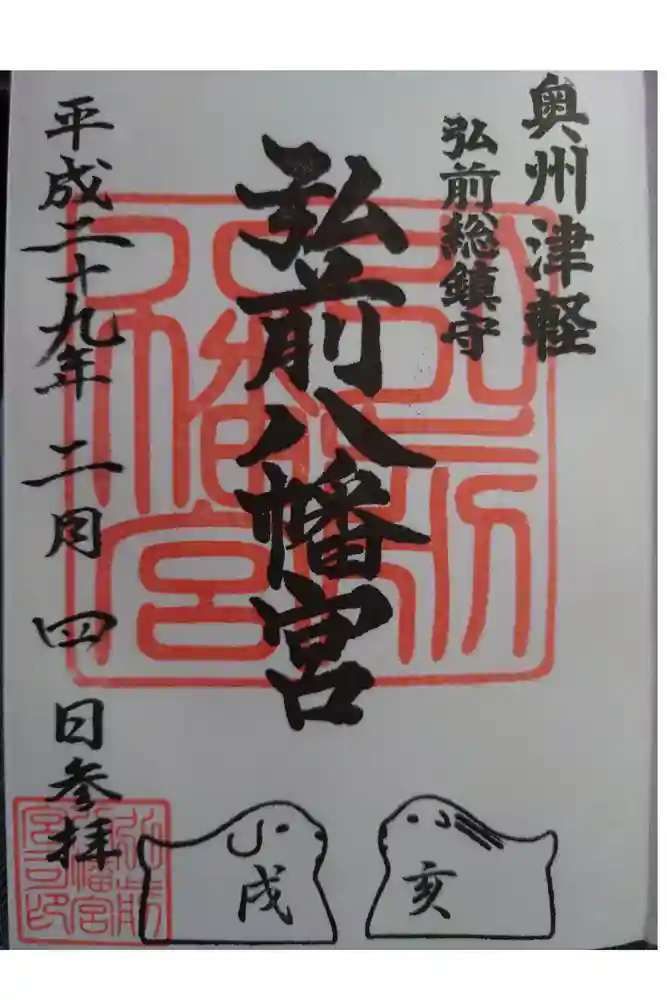 奥州津軽
弘前総鎮守
弘前八幡宮
平成二十九年 二月 四 日参拝
弘前
八幡宮
弘前
八幡宮
宮司印
戌
亥